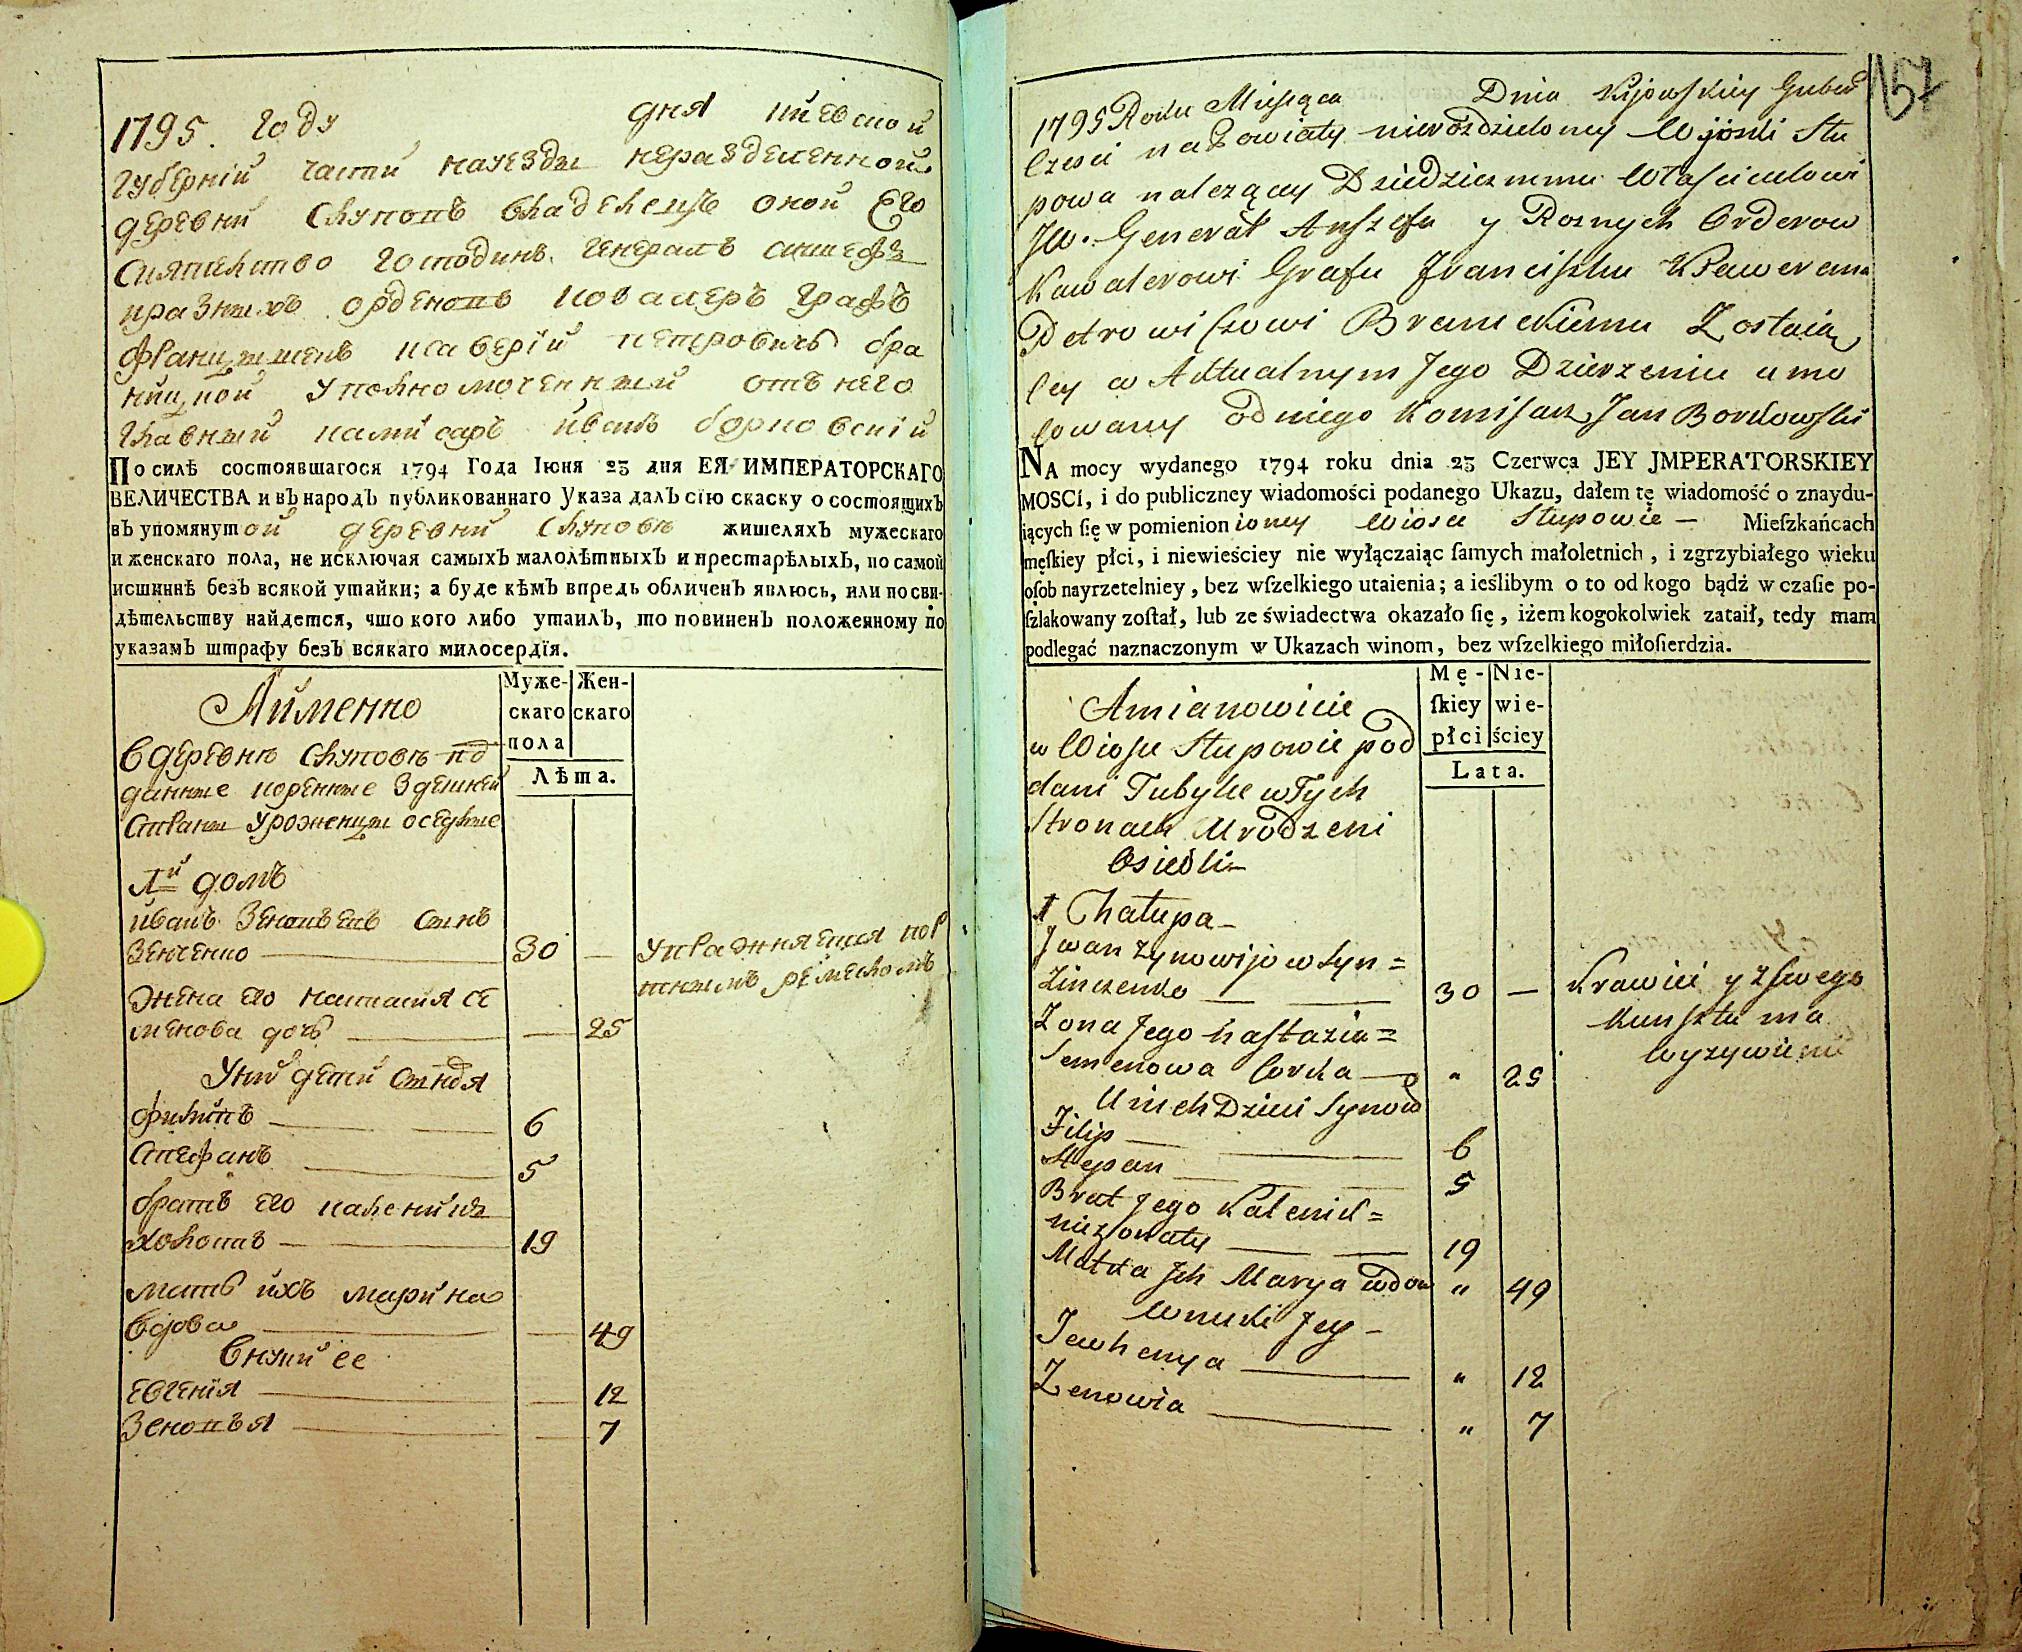 1795. году дня киевской
губернїи части науезды неразделенной
деревни Слуповъ владелецъ оной Его
Сиятелство господинъ Генералъ аншефъ
иразныхъ орденовъ ковалеръ Графъ
францышекъ ксаверїй петровичъ бра
ницкой уполномоченный отъ него
главный камисаръ иванъ борковскїй
По силѣ состоявшагося 1794 Года Іюня 23 дня ЕЯ ИМПЕРАТОРСКАГО
ВЕЛИЧЕСТВА и въ народъ публикованнаго Указа далъ сїю скаску о состоящихъ
въ упомянутой деревни Слуповѣ жителяхъ мужескаго
и женскаго пола, не исключая самыхъ малолѣтныхъ и престарѣлыхъ, по самой
истиннѣ безъ всякой утайки; а буде кѣмъ впредь обличенъ явлюсь, или по сви-
дѣтельству найдется, что кого либо утаилъ, то повиненъ положенному по
указамъ штрафу безъ всякаго милосердїя.
Аймено
Муже-
скаго
пола
Жен-
скаго
Лѣта.
вдеревнѣ Слуповѣ под
данные коренные здешней
страны уроженцы оседлые
1й домъ
иванъ Зеновъевъ сынъ
Зенченко 30 — упражняется пор
тнымъ ремесломъ
жена его настасия се
менова дочь — 25
уних детей сыновя
филипъ 6
Стефанъ 5
братъ его каленикъ
холопав 19
мать ихъ марина
вдова — 49
внуки ее
евгения — 12
Зеновъя — 7
157
1795 Roku Miesiąca Dnia Kijowskiey Guber
Częsci na Powiaty nierozdzieloney Wioski Słu
powa nalezącey Dziedzicznemu Właścicielowi
JW. Generał Anszefu y Roznych Orderow
Kawalerowi Grafu Franciszku Xaweremu
Petrowiczowi Braneckiemu Zostaią
cey w Aktualnym Jego Dzierzeniu umo
cowany od niego Komisarz Jan Borkowski
NA mocy wydanego 1794 roku dnia 23 Czerwca JEY JMPERATORSKIEY
MOSCI, i do publiczney wiadomości podanego Ukazu, dałem tę wiadomość o znaydu-
iących ſię w pomienionioney Wiosce Słupowie — Mieſzkańcach
męſkiey płci, i niewieściey nie wyłączaiąc ſamych małoletnich, i zgrzybiałego wieku
oſob nayrzetelniey, bez wſzelkiego utaienia; a ieślibym o to od kogo bądź w czaſie po-
ſzlakowany zoſtał, lub ze świadectwa okazało ſię, iżem kogokolwiek zataił, tedy mam
podlegać naznaczonym w Ukazach winom, bez wſzelkiego miłoſierdzia.
Amianowicie
Mę-
ſkiey
płci
Nie-
wie-
ściey
Lata.
w Wiosce Słupowie pod
dani Tubylce wTych
Stronach Urodzeni
Osiedli—
1 Chałupa—
Jwan Zynowijow Syn =
Zinczenko 30 — Krawiec y zSwego
Kunsztu ma
wyzywienie
Zona Jego Nastazia =
Semenowa Corka „ 25
Unich Dzieci Synow
Filip 6
Stepan 5
Brat Jego Kalenik =
niezonaty 19
Matka Jch Marya wdow „ 49
Wnuki Jey —
Jewhenya „ 12
Zenowia „ 7